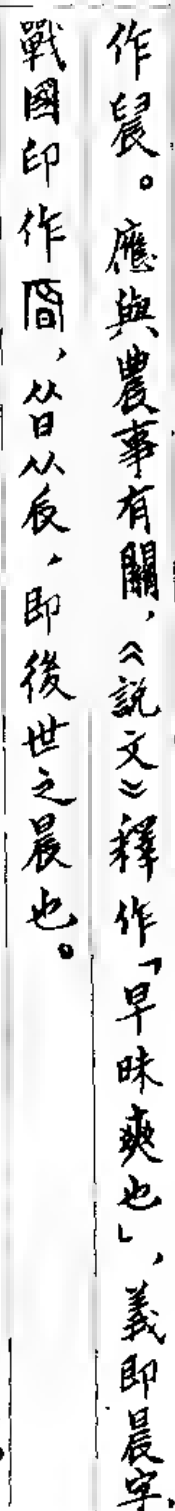 作䢅。應與農事有關，《説文》釋作「早昧爽也」，義即晨字，
戰國印作，从日从辰，即後世之晨也。